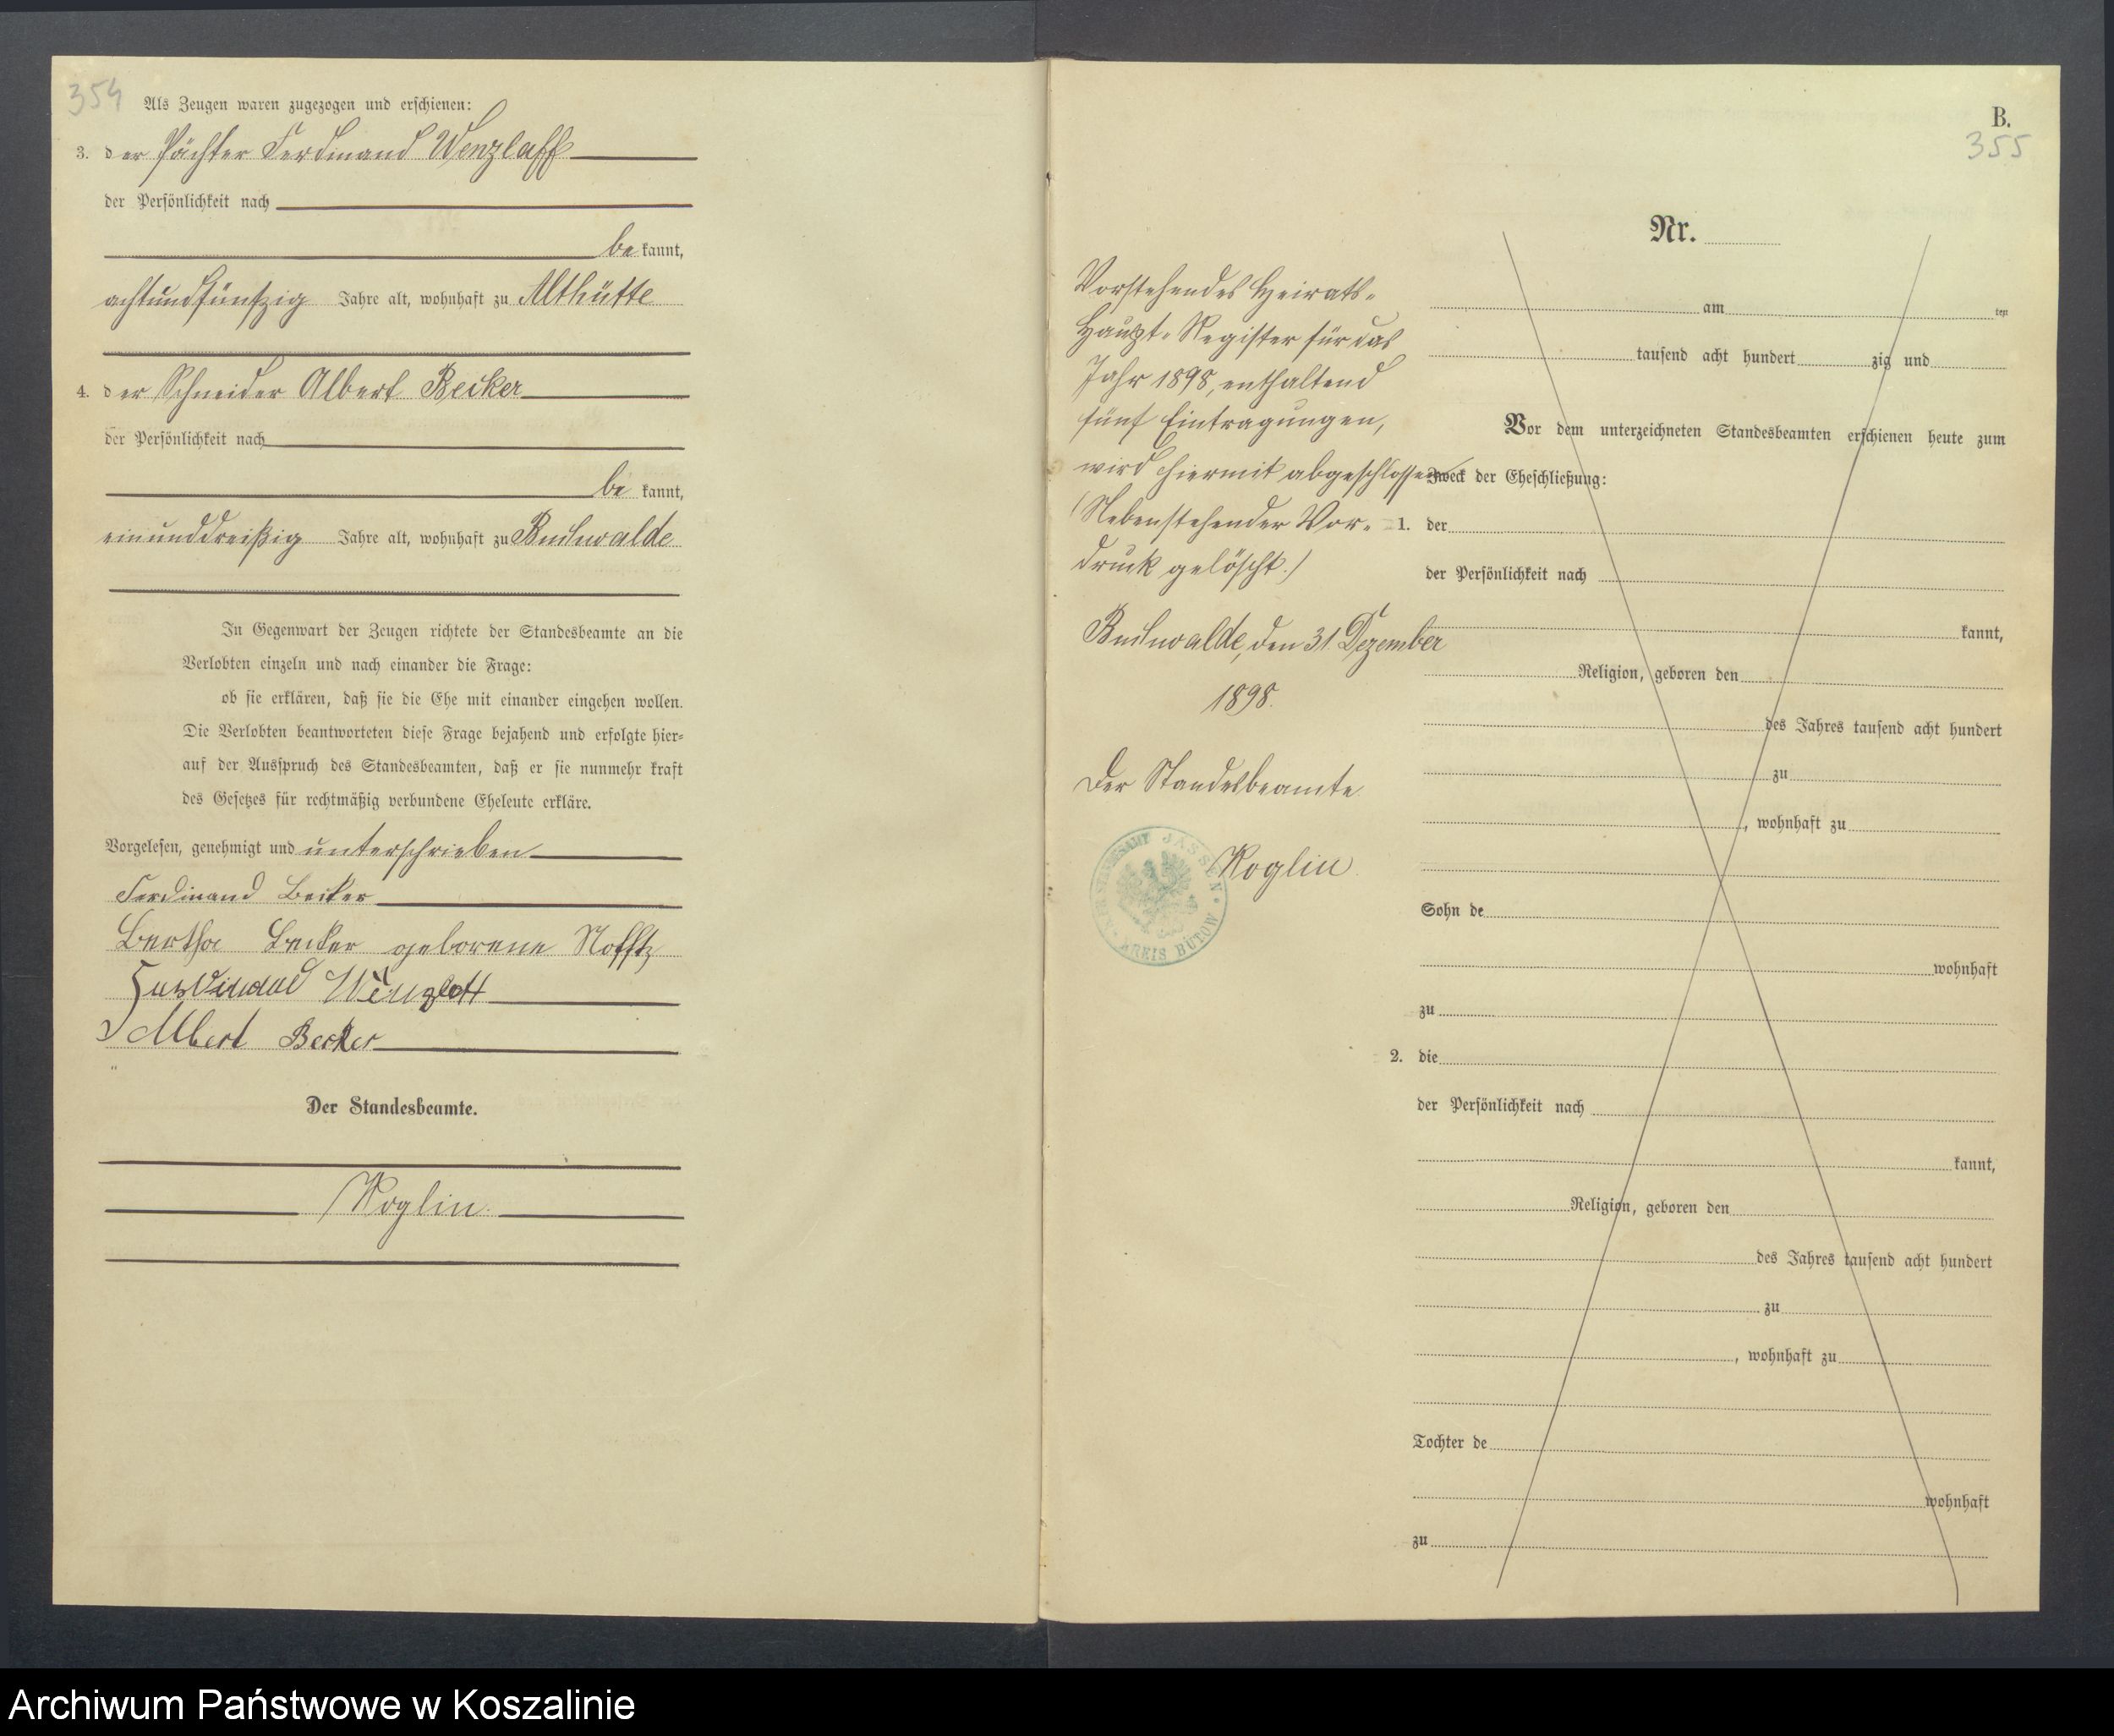 354
Als Zeugen waren zugezogen und erschienen:
3. der Pächter Ferdinand Wenzlaff
der Persönlichkeit nach
bekannt,
achtundfünfzig Jahre alt, wohnhaft zu Althütte
4. der Schneider Albert Becker
der Persönlichkeit nach
be kannt,
einunddreißig Jahre alt, wohnhaft zu Buchwalde
In Gegenwart der Zeugen richtete der Standesbeamte an die
Verlobten einzeln und nach einander die Frage:
ob sie erklären, daß sie die Ehe mit einander eingehen wollen.
Die Verlobten beantworteten diese Frage bejahend und erfolgte hier-
auf der Ausspruch des Standesbeamten, daß er sie nunmehr kraft
des Gesetzes für rechtmäßig verbundene Eheleute erkläre.
Vorgelesen, genehmigt und unterschrieben
Ferdinand Becker
Bertha Becker geborene
Ferdinand Wenzlaff
Albert Becker
Der Standesbeamte.
Koglin.
B.
355
Vorstehendes Heirats-
Haupt-Register für das
Jahr 1898, enthaltend
fünf Eintragungen,
wird hiermit abgeschlossen
(Nebenstehender Vor-
druck gelöscht.)
Buchwalde, den 31. Dezember
1898.
Der Standesbeamte
Koglin
STANDESAMT JASSEN
KREIS BÜTOW
Nr.
am ten
tausend acht hundert zig und
Vor dem unterzeichneten Standesbeamten erschienen heute zum
Zweck der Eheschließung:
1. der
der Persönlichkeit nach
kannt,
Religion, geboren den
des Jahres tausend acht hundert
zu
, wohnhaft zu
Sohn de
wohnhaft
zu
2. die
der Persönlichkeit nach
kannt,
Religion, geboren den
des Jahres tausend acht hundert
zu
, wohnhaft zu
Tochter de
wohnhaft
zu
Archiwum Państwowe w Koszalinie